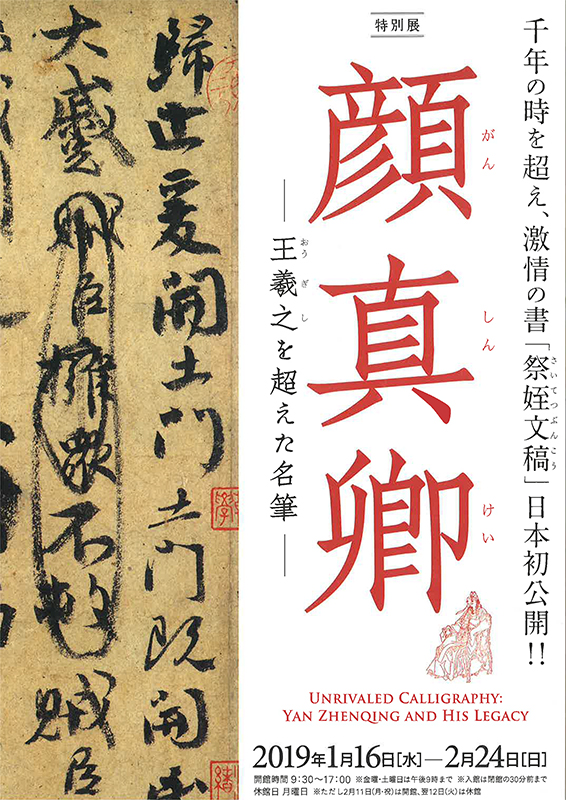 特別展
千年の時を超え、激情の書「祭姪文稿」日本初公開!!
さいてつぶんこう
顔真卿
がん
しん
けい
王羲之を超えた名筆
おう ぎ し
歸止爰開土門土門既開
大蹙賊臣擁衆不救賊臣
UNRIVALED CALLIGRAPHY:
YAN ZHENQING AND HIS LEGACY
2019年1月16日[水]—2月24日[日]
開館時間 9:30〜17:00 ※金曜・土曜日は午後9時まで ※入館は閉館の30分前まで
休館日 月曜日 ※ただし2月11日(月・祝)は開館、翌12日(火)は休館